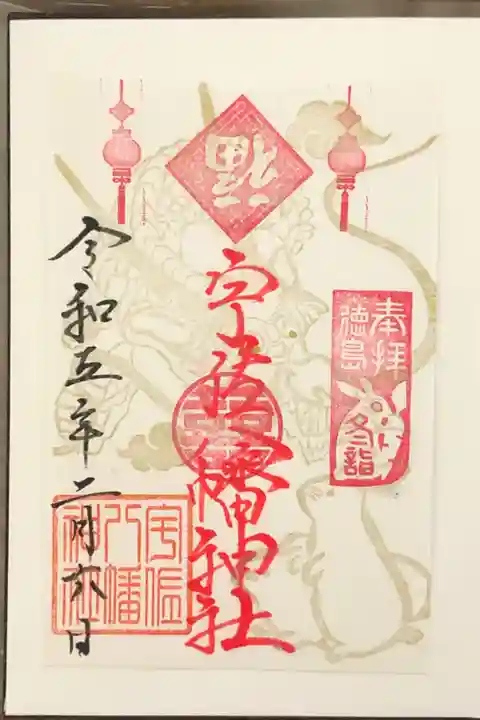 奉拝
徳島
冬詣
福
宇佐八幡神社
令和五年二月六日
宇佐
八幡
神社